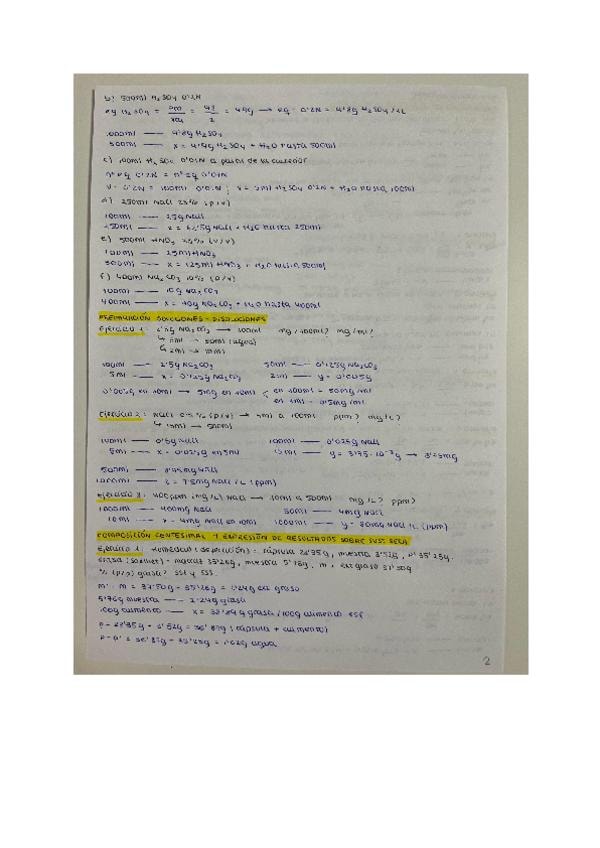 b) 500ml H2SO4 0'2N
eq H2SO4 = = 98/2 = 49g → eq · 0'2N = 9'8g H2SO4 / 1L
1000ml — 9'8g H2SO4
500ml — x = 4'9g H2SO4 + H2O hasta 500ml
c) 100ml H2SO4 0'01N a partir de la anterior
nº eq 0'2N = nº eq 0'01N
V · 0'2N = 100ml · 0'01N ; x = 5ml H2SO4 0'2N + H2O hasta 100ml
d) 250ml NaCl 25% (p/v)
100ml — 25g NaCl
250ml — x = 62'5g NaCl + H2O hasta 250ml
e) 500ml HNO3 25% (v/v)
100ml — 25ml HNO3
500ml — x = 125ml HNO3 + H2O hasta 500ml
f) 400ml Na2CO3 10% (p/v)
100ml — 10g Na2CO3
400ml — x = 40g Na2CO3 + H2O hasta 400ml
PREPARACIÓN SOLUCIONES - DISOLUCIONES
Ejercicio 1: 2'5g Na2CO3 → 100ml mg/100ml? mg/ml?
↳ 5ml → 50ml (agua)
↳ 2ml → 10ml
100ml — 2'5g Na2CO3 50ml — 0'125g Na2CO3
5ml — x = 0'125g Na2CO3 2ml — y = 0'005g
0'005g en 10ml → 5mg en 10ml en 100ml = 50mg/ml
en 1ml = 0'5mg/ml
Ejercicio 2: NaCl 0'5% (p/v) → 5ml a 100ml ppm? mg/L?
↳ 15ml → 500ml
100ml — 0'5g NaCl 100ml — 0'025g NaCl
5ml — x = 0'025g en 5ml 15ml — y = 3'75·10⁻³g → 3'75mg
500ml — 3'75mg NaCl
1000ml — z = 7'5mg NaCl/L (ppm)
Ejercicio 3: 400ppm (mg/L) NaCl → 10ml a 50ml mg/L? ppm?
1000ml — 400mg NaCl 50ml — 4mg NaCl
10ml — x = 4mg NaCl en 10ml 1000ml — y = 80mg NaCl/L (ppm)
COMPOSICIÓN CENTESIMAL Y EXPRESIÓN DE RESULTADOS SOBRE SUST SECA
Ejercicio 1: Humedad (desecación) - cápsula muestra 3'52g, P' 35'25g.
Grasa (soxhlet) - matraz 35'26g, muestra 5'76g, m + ext graso 37'50g
% (p/p) grasa? SSF y SSS
m' - m = 37'50g - 35'26g = 2'24g ext graso
5'76g muestra — 2'24g grasa
100g alimento — x = 38'89 g grasa/100g alimento SSF
(cápsula + alimento)
agua
2